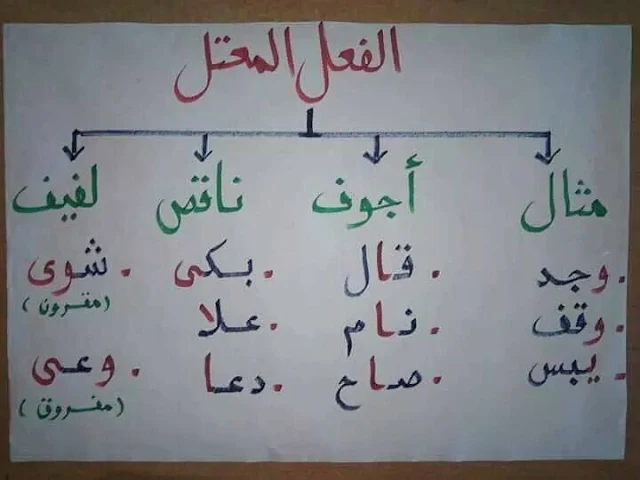 الفعل المعتل
مثال أجوف ناقص لفيف
. وجد . قال . بكى . شوى
(مقرون)
. وقف . نام . علا
- يبس . صاح . دعا . وعى
(مفروق)